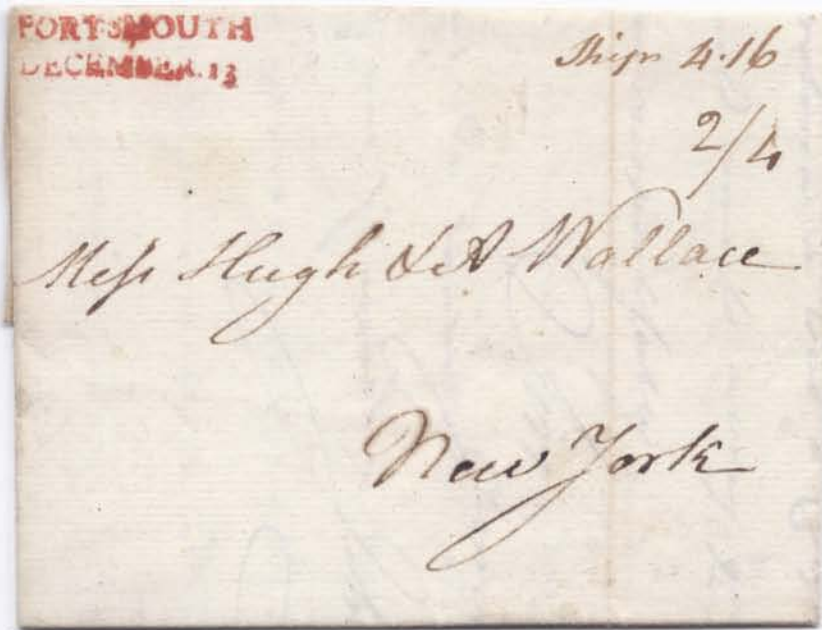 PORTSMOUTH
DECEMBER.13
Ship 4.16
2/4
Mess Hugh & A Wallace
New York